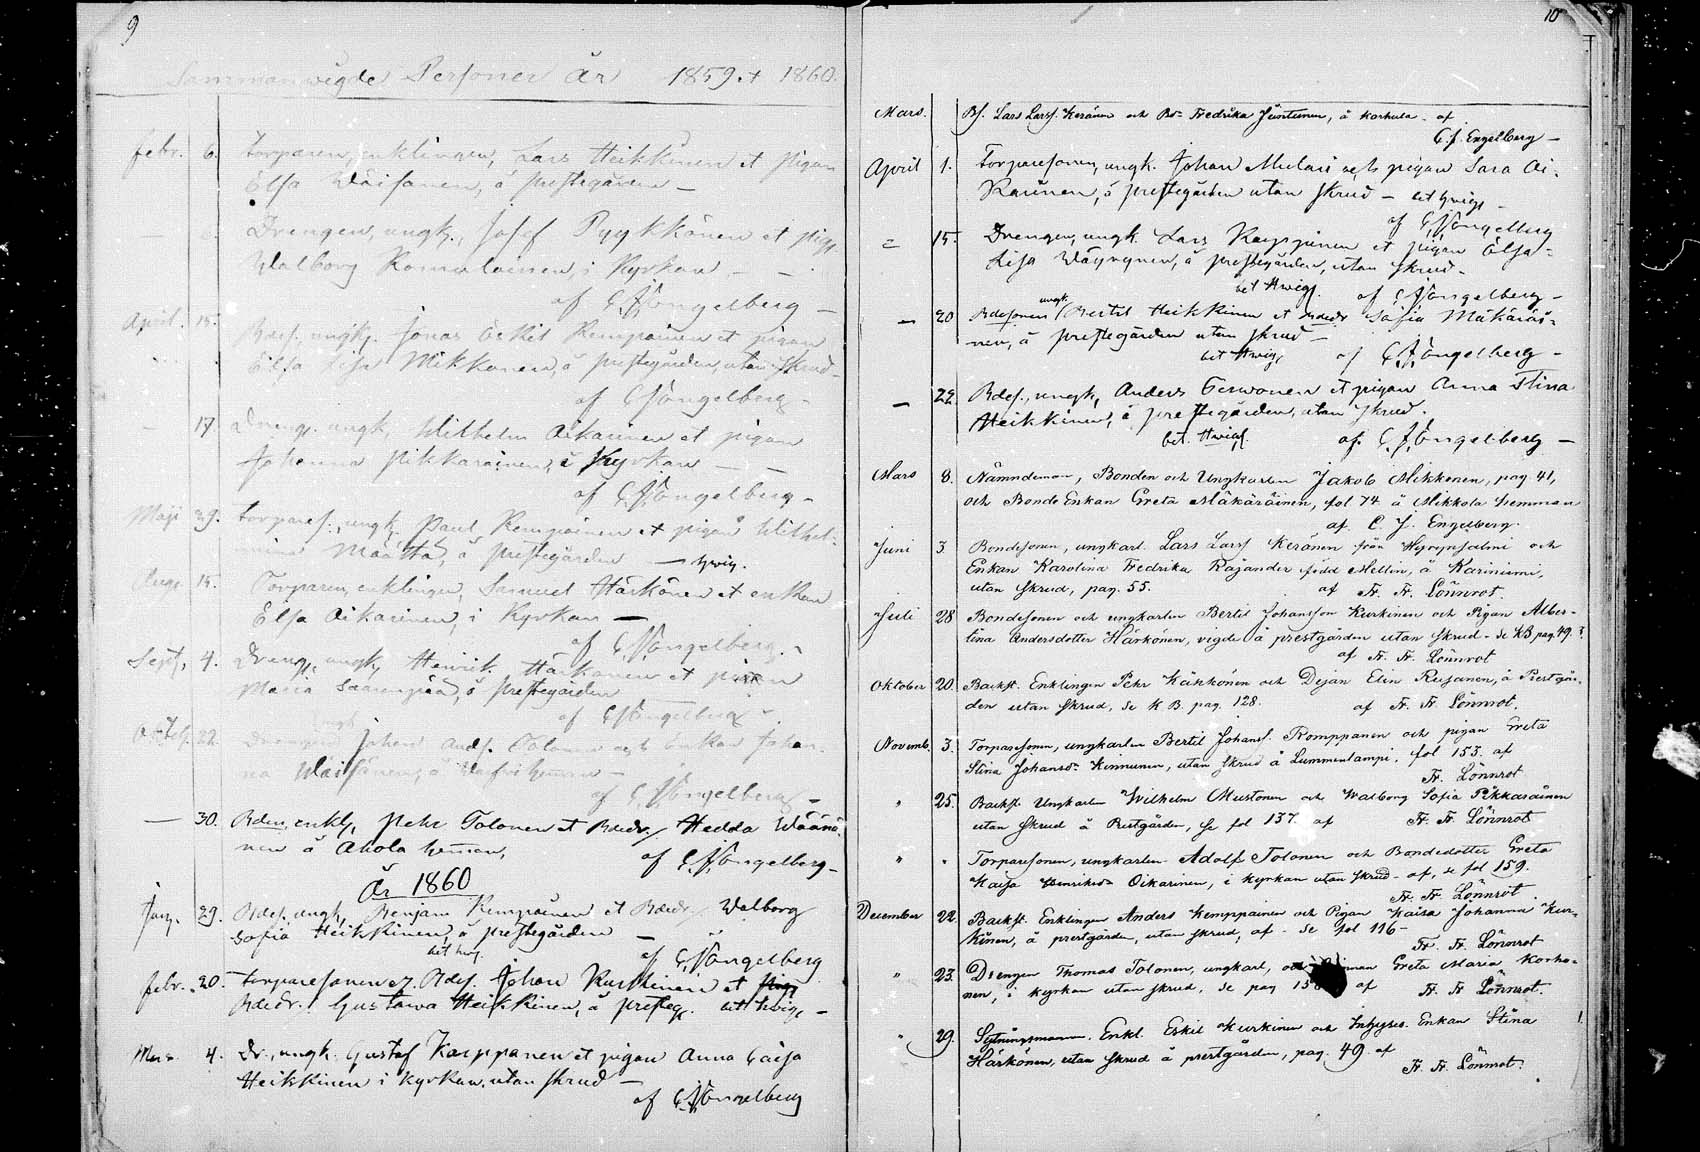 9
Sammanvigde Personer År 1859 et 1860.
Febr. 6. Torparen, enklingen, Lars Heikkinen et pigan
Elsa Wäisänen, å prestegården —
— 6. Drengen, ungk., Josef Pyykkönen et pig.
Walborg Komulainen, i Kyrkan — —
af CJEngelberg —
April. 15. Bdes. ungk. Jonas Eskil Kemppainen et pigan
Elsa Lisa Mikkonen, å prestegården, utan skrud —
af CJEngelberg —
— 17. Dreng. ungk. Wilhelm Aikarinen et pigan
Johanna Pikkarainen, i Kyrkan — —
af CJEngelberg —
Maji 29. Torpares., ungk. Paul Kemppainen et pigan Wilhel-
mina Määttä, å prestegården — hvig.
Aug. 15. Torparen, enklingen, Samuel Härkönen et enkan
Elsa Aikarinen, i Kyrkan —
af CJEngelberg.
Sept. 4. Dreng. ungk. Henrik Härkönen et pigan
Maria Saarenpää, å prestegården
af CJEngelberg
Octob. 22. Drengen Johan Ands. Tolonen och Enkan Johan-
na Wäisänen, å hemman —
af CJEngelberg —
— 30. Bden, enkl., Pehr Tolonen et Bdedr. Hedda Wäänä-
nen å Ahola heman,
af CJEngelberg —
År 1860
Jan. 29. Bdes. ungk. Benjam Kemppainen et Bdedr. Walborg
Sofia Heikkinen, å prestegården —
bet hvig.
af CJEngelberg
febr. 20. Torparesonen Bdes. Johan Kurkinen et
Bdedr. Gustawa Heikkinen, å presteg. bet hvig. —
Mars 4. Dr., ungk. Gustaf Karppanen et pigan Anna Caisa
Heikkinen i Kyrkan, utan skrud —
af CJEngelberg
10
Mars. Bs. Lars Larss. Keränen och Bdr Fredrika Juntunen, å Korhula. af
C. J. Engelberg —
April 1. Torparesonen, ungk. Johan Mulari och pigan Sara Ai-
karinen, å prestegården utan skrud — bet hvig. —
af CJEngelberg
= 15. Drengen, ungk. Lars Karppinen et pigan Elsa
Lisa Wäyrynen, å prestegården, utan skrud —
bet Hwig. af CJEngelberg —
ungk.
— 20 Bdesonen Bertil Heikkinen et Bdedr Sofia Mäkäräi-
nen, å prestegården utan skrud —
bet Hwig. af CJEngelberg —
— 22. Bdes., ungk, Anders Terwonen et pigan Anna Stina
Heikkinen, å prestegården, utan skrud.
bet. Hwigs. af CJEngelberg —
Mars 8. Nämndeman, Bonden och Ungkarlen Jakob Mikkonen, pag 41,
och Bonde Enkan Greta Mäkäräinen, fol 74 å Mikkola hemman
af C. J. Engelberg.
Juni 3 Bondesonen, ungkarl. Lars Larss Keränen från Hyrynsalmi och
Enkan Karolina Fredrika Kajander född Mellin, å Kariniemi,
utan skrud, pag. 55. af Fr. Fr. Lönnrot.
Juli 28 Bondesonen och ungkarlen Bertil Johansson Kurkinen och Pigan Alber-
tina Andersdotter Härkönen, vigde å prestgården utan skrud - se KB pag. 49.
af Fr. Fr. Lönnrot
Oktober 20. Backst. Enklingen Pehr Kähkönen och Dejan Elin Rusanen, å Prestgår-
den utan skrud, se K B. pag. 128. af Fr. Fr. Lönnrot.
Novemb. 3. Torparesonen, ungkarlen Bertil Johanss. Romppanen och pigan Greta
Stina Johansdr Kinnunen, utan skrud å Lummenlampi. fol 153. af
Fr. Lönnrot
" 25. Backst. Ungkarlen Wilhelm Mustonen och Walborg Sofia Pikkarainen
utan skrud å Prestgården, se fol 137. af Fr. Fr. Lönnrot
" " Torparesonen, ungkarlen Adolf Tolonen och Bondedotter Greta
Kaisa Henriksdr Oikarinen, i kyrkan utan skrud - af, se fol 159.
Fr. Fr Lönnrot
December 22. Backst. Enklingen Anders Kemppainen och Pigan Kaisa Johanna Kur-
kinen, å prestgården, utan skrud, af - Se fol 116 -
Fr. Fr. Lönnrot
" 23. Drengen Thomas Tolonen, ungkarl, Greta Maria Korho-
nen, i kyrkan utan skrud, se pag af Fr. Fr Lönnrot.
" 29. Sytningsmann. Enkl. Eskil Kurkinen och Inhyses. Enkan Stina
Härkönen, utan skrud å prestgården, pag. 49. af
Fr. Fr. Lönnrot.